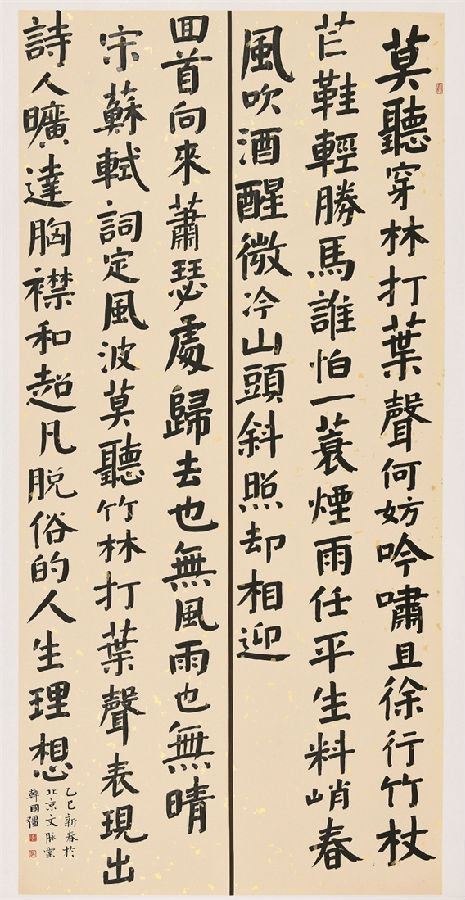 莫聽穿林打葉聲何妨吟嘯且徐行竹杖
芒鞋輕勝馬誰怕一蓑煙雨任平生料峭春
風吹酒醒微冷山頭斜照却相迎
囬首向來蕭瑟處歸去也無風雨也無晴
宋蘇軾詞定風波莫聽竹林打葉聲表現出
詩人曠達胸襟和超凡脱俗的人生理想
乙巳新春於
北京文脉
韓國